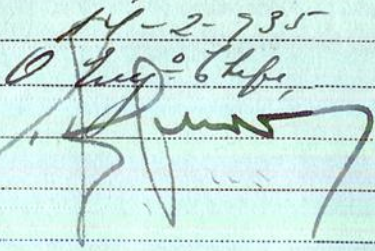 14-2-935
O Engº Chefe,